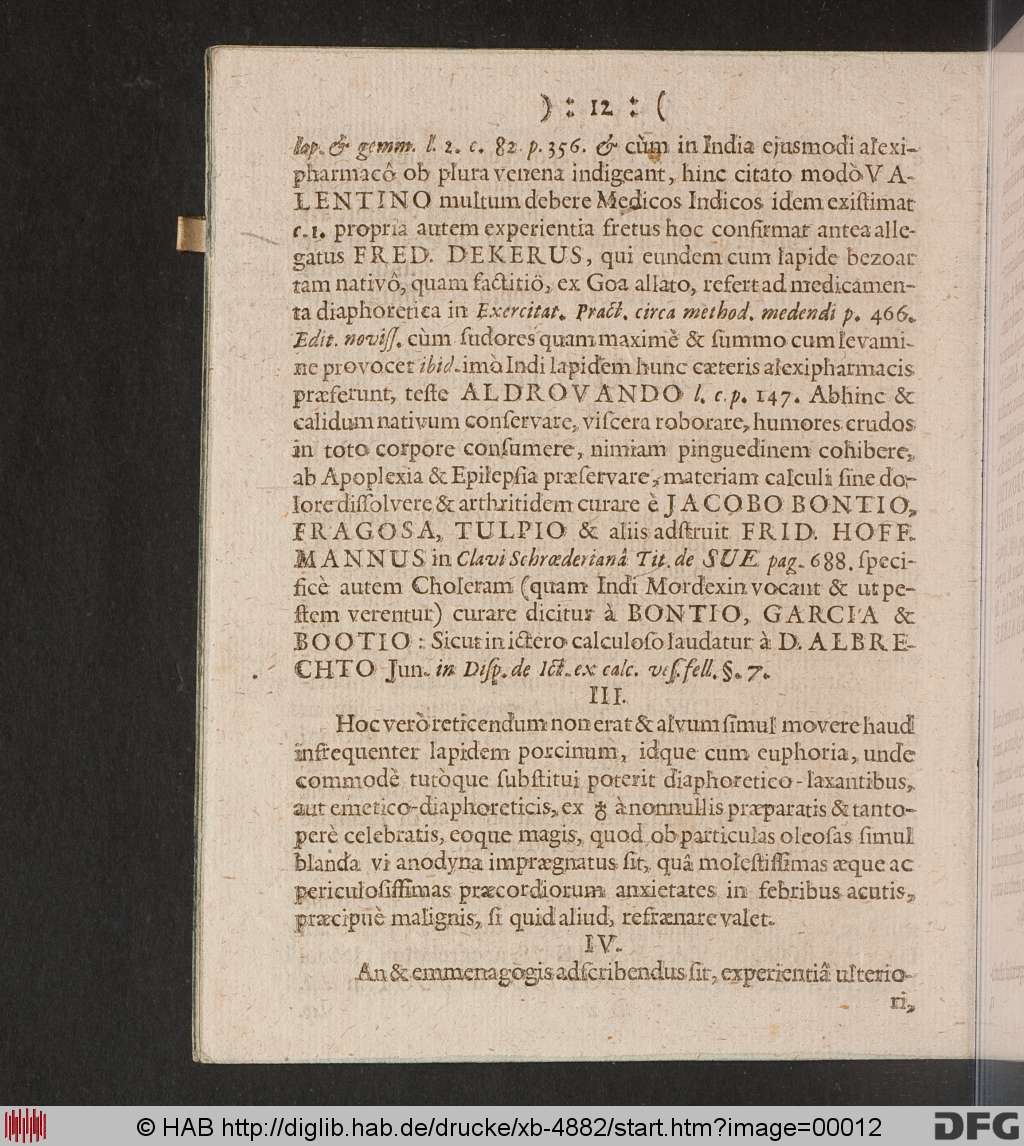 ) : 12 : (
lap. & gemm. l. 2. c. 82. p. 356. & cùm in India ejusmodi alexi-
pharmacô ob plura venena indigeant, hinc citato modò VA-
LENTINO multum debere Medicos Indicos idem existimat
c. 1. propria autem experientia fretus hoc confirmat antea alle-
gatus FRED. DEKERUS, qui eundem cum lapide bezoar
tam nativô, quam factitiô, ex Goa allato, refert ad medicamen-
ta diaphoretica in Exercitat. Pract. circa method. medendi p. 466.
Edit. noviss. cùm sudores quam maximè & summo cum levami-
ne provocet ibid. imò Indi lapidem hunc cæteris alexipharmacis
præferunt, teste ALDROVANDO l. c. p. 147. Abhinc &
calidum nativum conservare, viscera roborare, humores crudos
in toto corpore consumere, nimiam pinguedinem cohibere,
ab Apoplexia & Epilepsia præservare, materiam calculi sine do-
lore dissolvere & arthritidem curare è JACOBO BONTIO,
FRAGOSA, TULPIO & aliis adstruit FRID. HOFF-
MANNUS in Clavi Schrœderianâ Tit. de SUE pag. 688. speci-
ficè autem Choleram (quam Indi Mordexin vocant & ut pe-
stem verentur) curare dicitur à BONTIO, GARCIA &
BOOTIO : Sicut in ictero calculoso laudatur à D. ALBRE-
CHTO Jun. in Disp. de Ict. ex calc. ves. fell. §. 7.
III.
Hoc verò reticendum non erat & alvum simul movere haud
infrequenter lapidem porcinum, idque cum euphoria, unde
commodè tutòque substitui poterit diaphoretico-laxantibus,
aut emetico-diaphoreticis, ex ♁ à nonnullis præparatis & tanto-
perè celebratis, eoque magis, quod ob particulas oleosas simul
blanda vi anodyna imprægnatus sit, quâ molestissimas æque ac
periculosissimas præcordiorum anxietates in febribus acutis,
præcipuè malignis, si quid aliud, refrænare valet.
IV.
An & emmenagogis adscribendus sit, experientiâ ulterio-
ri,
© HAB http://diglib.hab.de/drucke/xb-4882/start.htm?image=00012
DFG